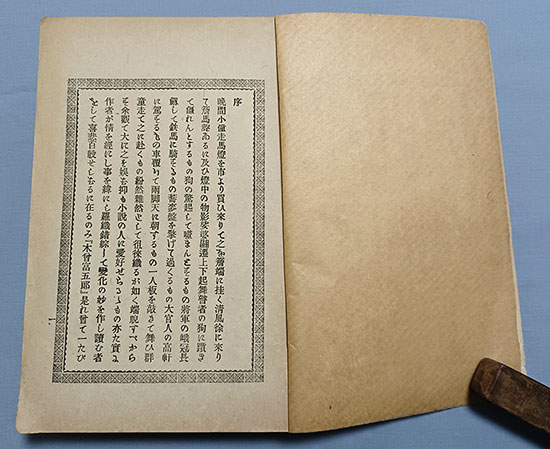 序
晩間小僮走馬燈を市より買ひ来りて之を簷端に挂く清風徐に来り
て簷馬鏘然るに及び燈中の物影婆娑翩遷上下起舞瞽者の狗に躓き
て僵れんとするもの狗の驚起して噬まんとするもの将軍の峨冠長
劔して鉄馬に騎するもの蕎麦盤を擎げて過くるもの大官人の高軒
に駕するもの車覆りて両脚天に朝するもの一人板を敲きて舞ひ群
童走て之に赴くもの紛然雑然として往後織るが如く端脱すべから
を余観て大に之を娯む抑も小説の人に愛好せらるゝもの亦た実に
作者が情を経にし事を緯にし羅織錯綜して変化の妙を作し読む者
をして喜悲百般せしむるに在るのみ「木曾富五郎」是れ曾て一たび
一